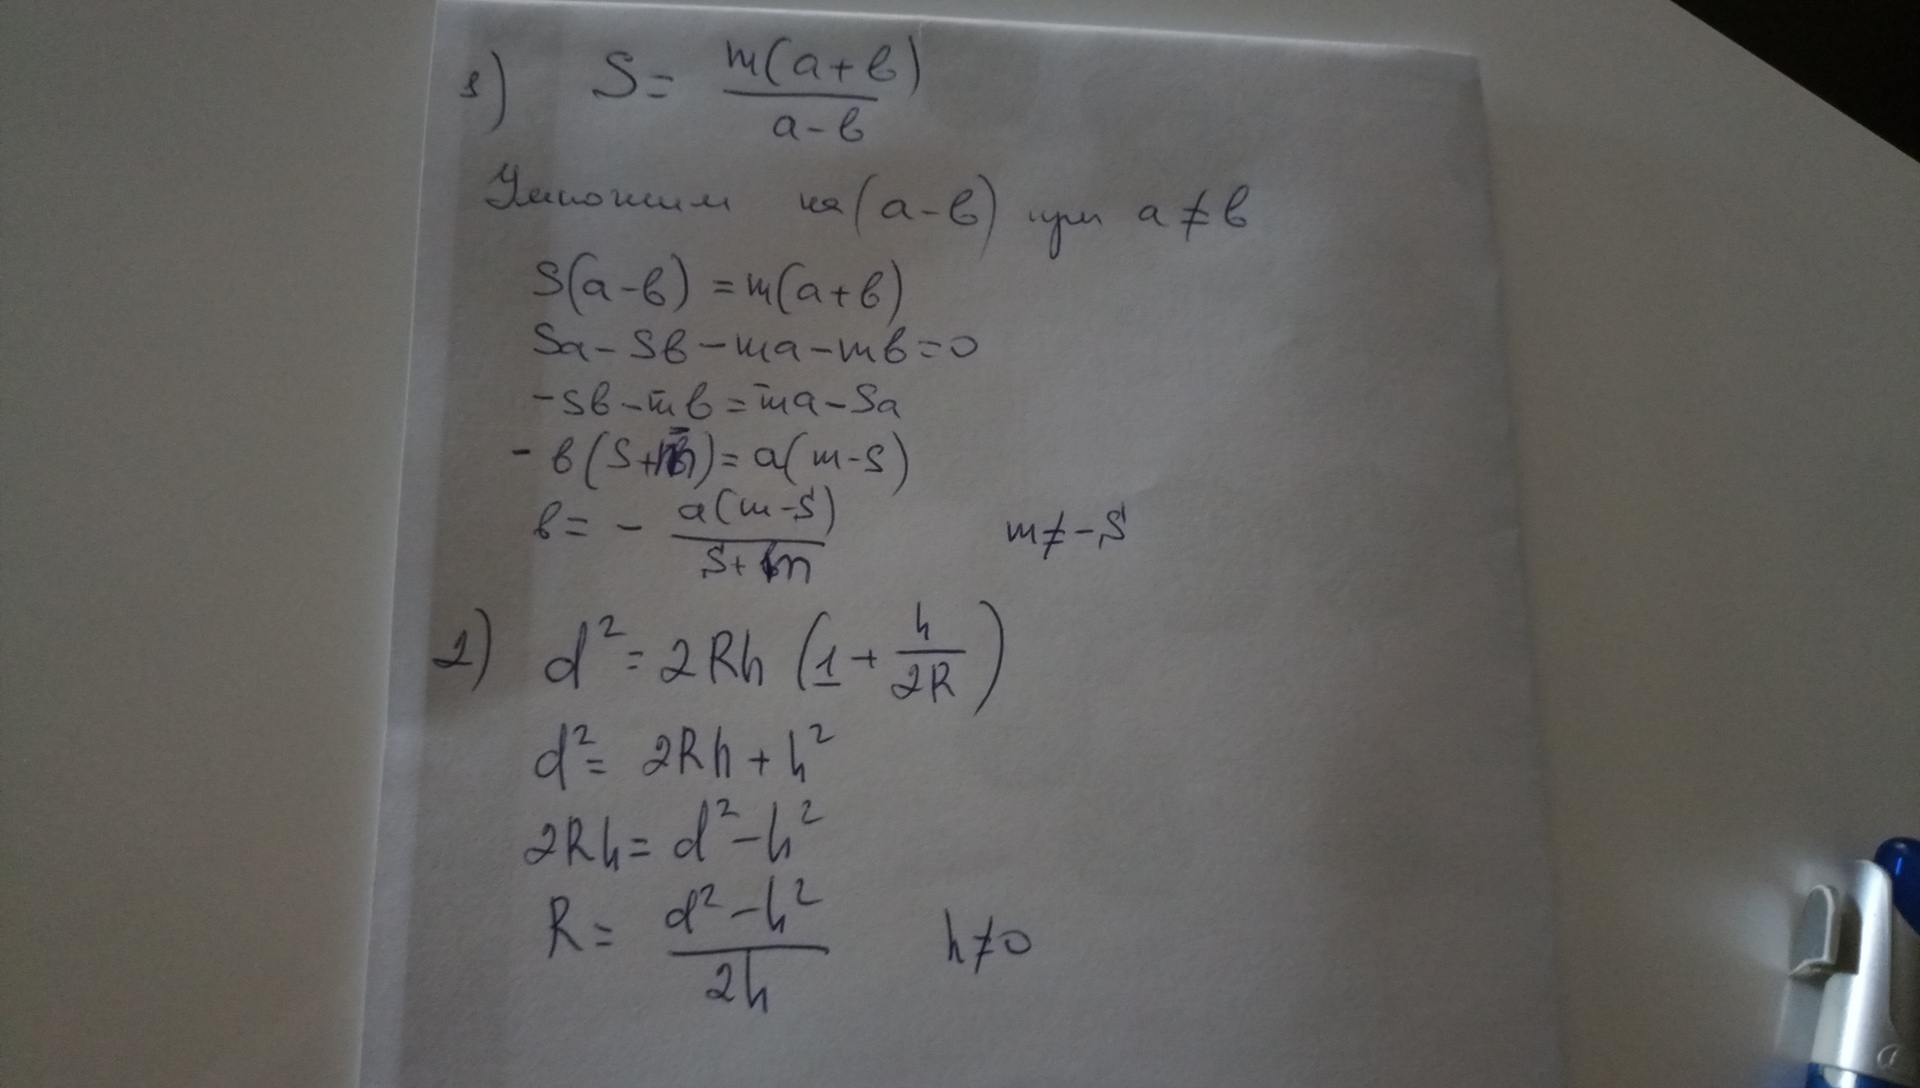 1) S = m(a+в)/(a-в)
Умножим на (a-в) при a≠в
S(a-в) = m(a+в)
Sa-Sв-ma-mв=0
-Sв-mв=ma-Sa
-в(S+m)=a(m-S)
в = - a(m-S)/(S+m) m≠-S
2) d² = 2Rh (1 + h/2R)
d² = 2Rh + h²
2Rh = d²-h²
R = (d²-h²)/2h h≠0